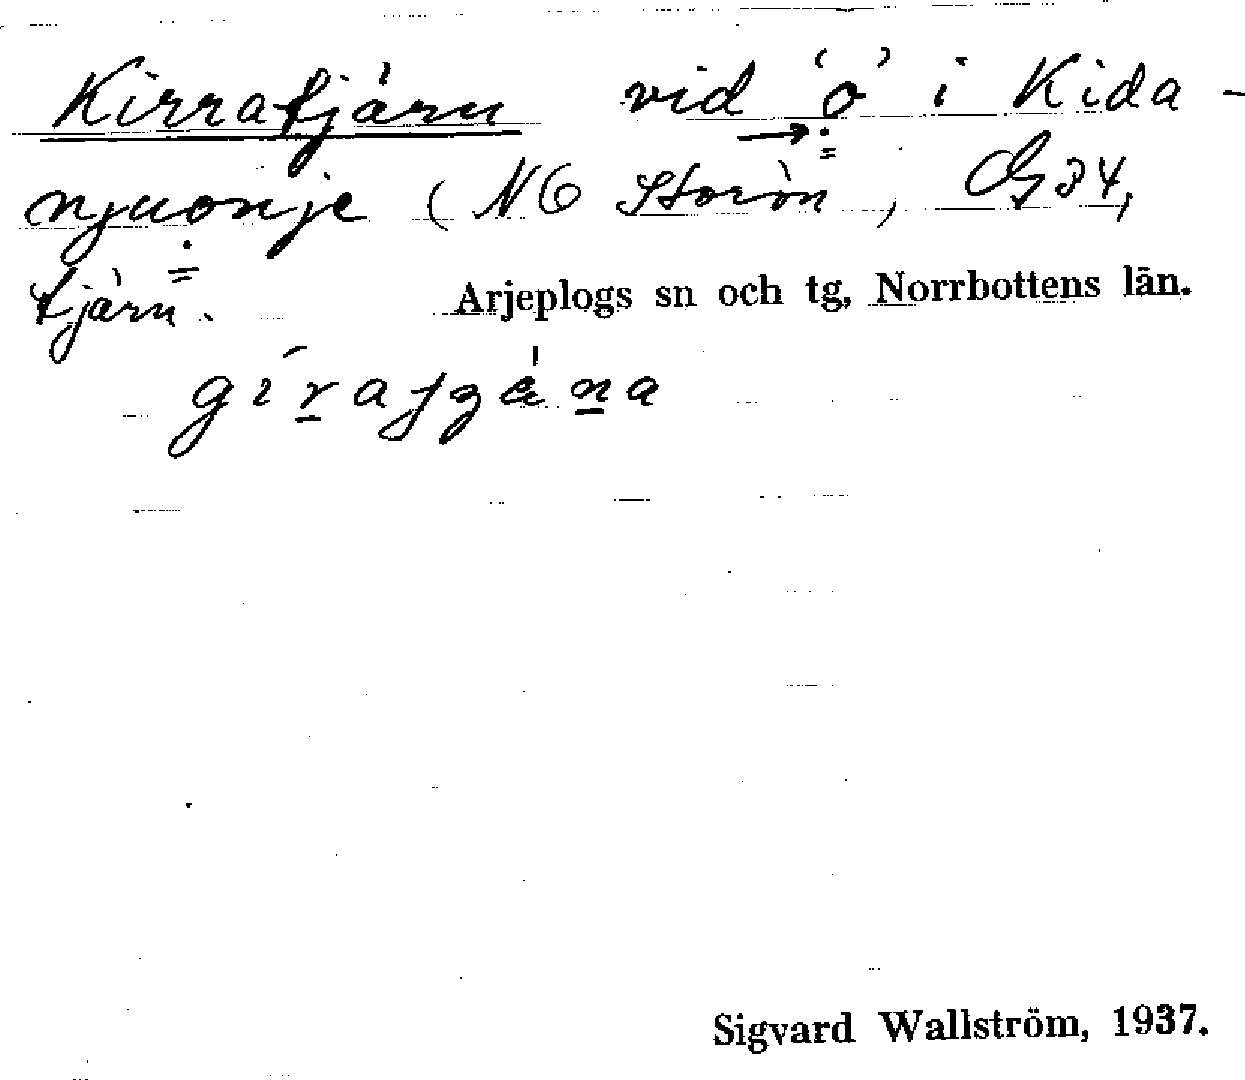 Kirratjärn vid 'o' i Kida-
njuonje (NO Storön), G34,
tjärn.
Arjeplogs sn och tg, Norrbottens län.
Sigvard Wallström, 1937.